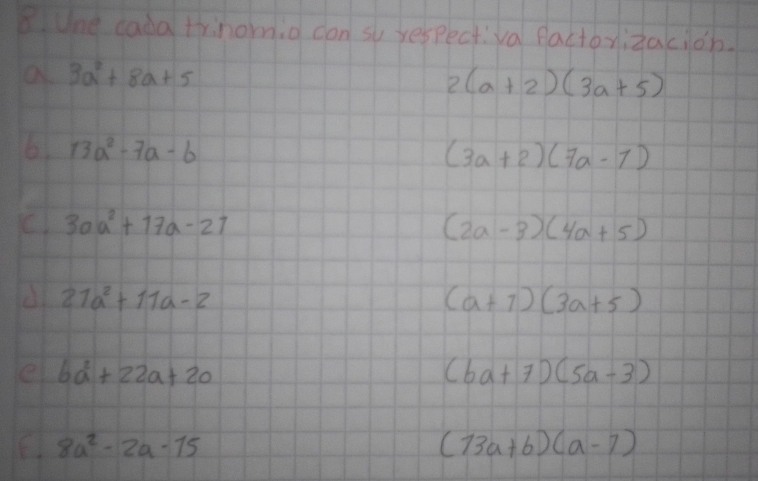 8. Une cada trinomio con su respectiva factorización.
a. 3a² + 8a + 5    2(a + 2)(3a + 5)
b. 13a² - 7a - 6    (3a + 2)(7a - 1)
c. 30a² + 17a - 21    (2a - 3)(4a + 5)
d. 21a² + 11a - 2    (a + 1)(3a + 5)
e. 6a² + 22a + 20    (6a + 7)(5a - 3)
f. 8a² - 2a - 15    (13a + 6)(a - 1)